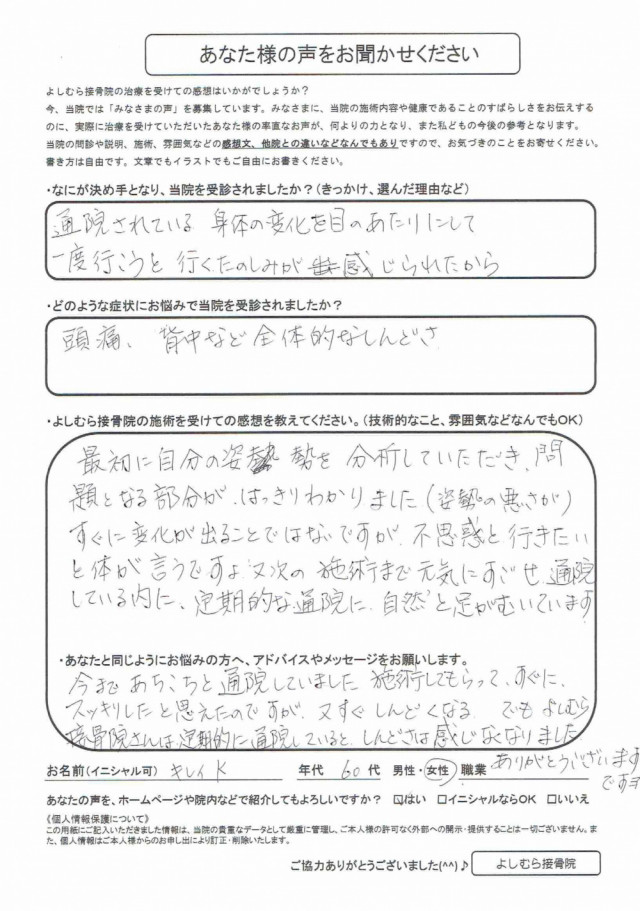 あなた様の声をお聞かせください
よしむら接骨院の治療を受けての感想はいかがでしょうか？
今、当院では「みなさまの声」を募集しています。みなさまに、当院の施術内容や健康であることのすばらしさをお伝えする
のに、実際に治療を受けていただいたあなた様の率直なお声が、何よりの力となり、また私どもの今後の参考となります。
当院の問診や説明、施術、雰囲気などの感想文、他院との違いなどなんでもありですので、お気づきのことをお寄せください。
書き方は自由です。文章でもイラストでもご自由にお書きください。
・なにが決め手となり、当院を受診されましたか？（きっかけ、選んだ理由など）
通院されている 身体の変化を目のあたりにして
一度行こうと 行くたのしみが 感じられたから
・どのような症状にお悩みで当院を受診されましたか？
頭痛、背中など全体的なしんどさ
・よしむら接骨院の施術を受けての感想を教えてください。（技術的なこと、雰囲気などなんでもOK）
最初に自分の姿勢を 分析していただき、問
題となる部分が、はっきりわかりました（姿勢の悪さが）
すぐに変化が出ることではないですが、不思惑と行きたい
と体が言うですよ 又次の施術まで元気にすごせ 通院
している内に、定期的な通院に 自然と足がむいています
・あなたと同じようにお悩みの方へ、アドバイスやメッセージをお願いします。
今まであちこちと通院していました 施術してもらって、すぐに、
スッキリしたと思えたのですが、又すぐしんどくなる でもよしむら
接骨院さんは、定期的に通院していると、しんどさは感じなくなりました
ありがとうございます
ですヨ
お名前（イニシャル可） キレイ K 年代 60 代 男性・女性 職業
あなたの声を、ホームページや院内などで紹介してもよろしいですか？ □はい □イニシャルならOK □いいえ
《個人情報保護について》
この用紙にご記入いただきました情報は、当院の貴重なデータとして厳重に管理し、ご本人様の許可なく外部への開示・提供することは一切ございません。ま
た、個人情報はご本人様からのお申し出により訂正・削除いたします。
ご協力ありがとうございました(^^)♪ よしむら接骨院